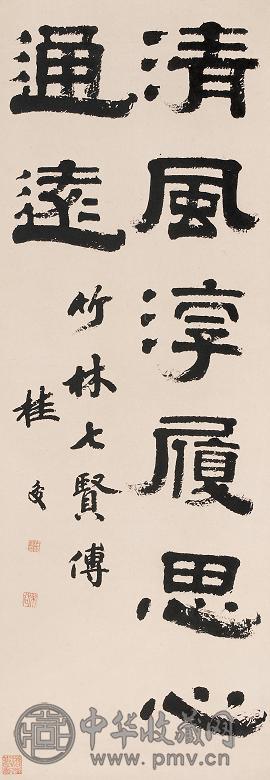 清風淳履思心
通遠
竹林七賢傳
桂馥
中华收藏网
www.pmv.cn